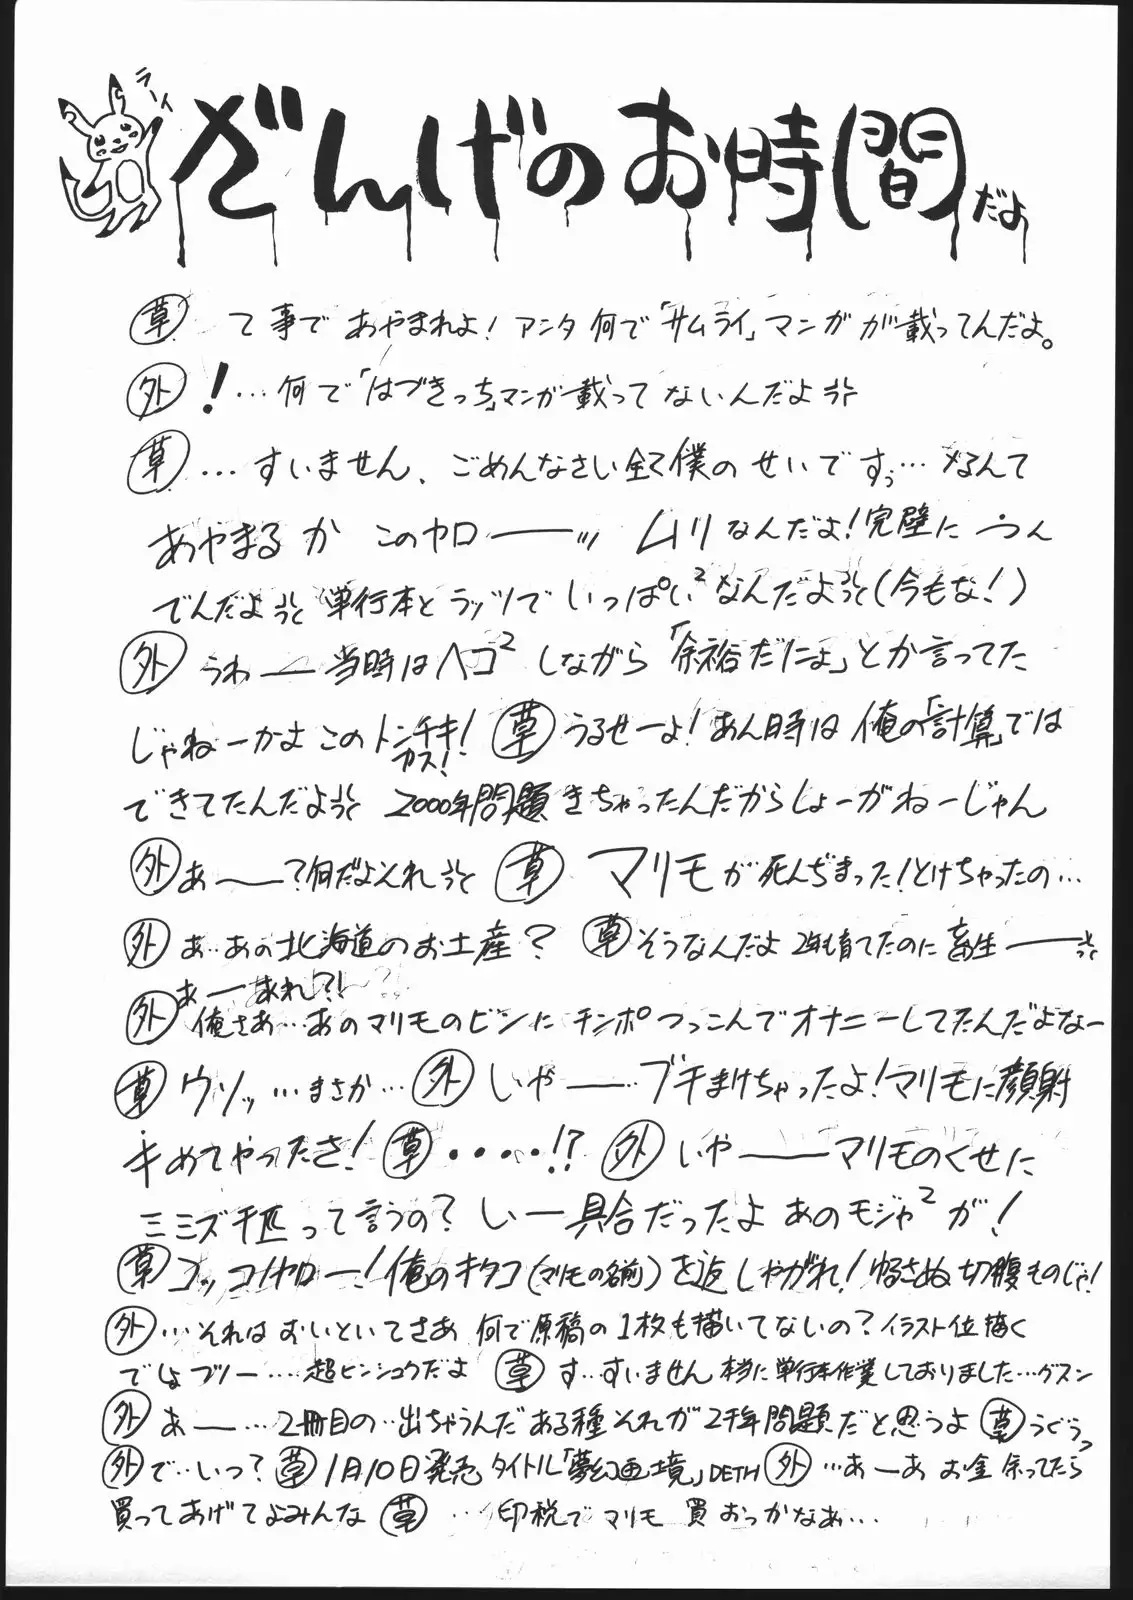 ラーイ
ざんげのお時間だよ
草 て事であやまれよ!アンタ何で「サムライ」マンガが載ってんだよ。
外 !…何で「はづきっち」マンガ載ってないんだよ
草 …すいません、ごめんなさい全て僕のせいですぅ…なんて
あやまるか このヤローーッ ムリなんだよ!完璧に
でんだよ 単行本とラッツでいっぱい²なんだよ(今もな!)
外 うわー当時はヘコ²しながら「余裕だにょ」とか言ってた
じゃねーかよ このトンチキ!カス! 草 うるせーよ!あん時は俺の「計算」では
できてたんだよ 2000年問題きちゃったんだからしょーがねーじゃん
外 あー?何だよそれ 草 マリモが死んぢまった!とけちゃったの…
外 あ…あの北海道のお土産? 草 そうなんだよ 2年も育てたのに畜生ー
あーあれ?!
外 俺さあ…あのマリモのビンにチンポつっこんでオナニーしてたんだよなー
草 ウソッ…まさか… 外 いやー…ブチまけちゃったよ!マリモに顔射
キめてやったさ! 草 ・・・・・!? 外 いやーマリモのくせに
ミミズ千匹って言うの?いー具合だったよ あのモジャ²が!
草 コッコノヤロー!俺のキタコ(マリモの名前)を返しやがれ!ゆるさぬ切腹ものじゃ!
外 …それはおいといてさあ 何で原稿の1枚も描いてないの?イラスト位描く
でしょブツー…超ヒンシュクだよ 草 す…すいません 本当に単行本作業しておりました…グスン
外 あー…2冊目の…出ちゃうんだ ある種それが2千年問題だと思うよ 草 うぐぅっ
外 で…いつ? 草 1月10日発売 タイトル「夢幻画境」DETH 外 …あーあ お金余ってたら
買ってあげてよみんな 草 …印税でマリモ買おっかなあ…